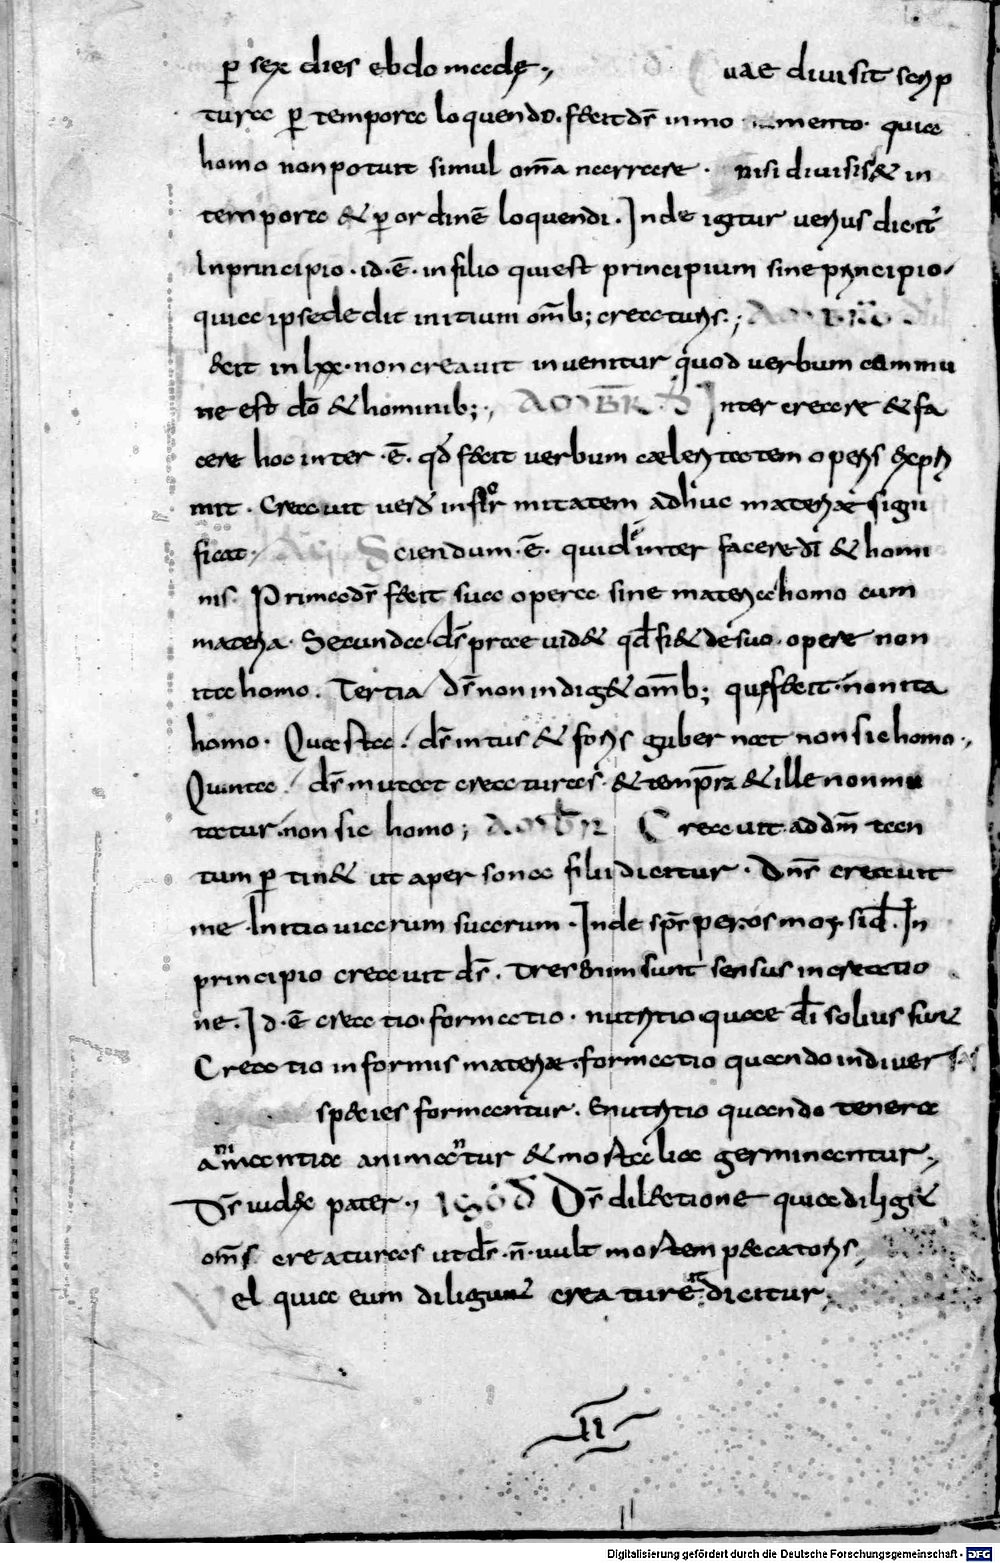 ꝑ sex dies ebdomadę.,
uae diuisit scrip
turaa ꝑ tempora loquendo. fecit dr̄ in mo mento. quia
homo non potuit simul om̄a narrare . nisi diuisis & in
tempora & ꝑ ordinē loquendi. Inde igitur uersus dicit̄
In principio. id. ē. in filio qui est principium sine principio
quia ipse dedit initium om̄b; creaturis.;
fecit in lxx. non creauit inuenitur quod verbum commu
ne est dō & hominib;., AMBR Inter creare & fa
cere hoc inter. ē. qđ fecit uerbum cæleritatem operis expri
mit. Creauit uero infirmitatem adhuc materiae signi
ficat. Sciendum. ē. quid inter facere dī & homi
nis. Prima dr̄ fecit sua opera sine materia homo cum
materia. Secunda ds̄ praeuid& qđ fi& de suo. opere non
ita homo. Tertia dr̄ non indig& om̄b; quę fecit. non ita
homo. Quarta. dr̄ intus & foris gubernat non sic homo.,
Quinta. dr̄ mutat creaturas. & tempora & ille non mu
tatur. non sic homo; AMBR Creauit. ad dm̄ tan
tum ꝑ tin& ut a persona filii dicitur. Dnr̄ creauit
me. Initio uiarum suarum. Inde spr̄ per os mosi. In
principio creauit dr̄. Tres enim sunt sensus in creatio
ne. Id. ē creatio. formatio. nutritio quae dī solius sunt
Creatio informis materiae. formatio quando in diuersas
species formantur. Enutritio quando tenera
animantia animantur & mortalia germinantur.,
Dr̄ uidex pater., Dr̄ dilectione quia dilig&
om̄s creaturas ut dr̄. n̄. uult mortem peccatoris,
Vel quia eum diligunt creaturę dicitur
II
Digitalisierung gefördert durch die Deutsche Forschungsgemeinschaft - DFG